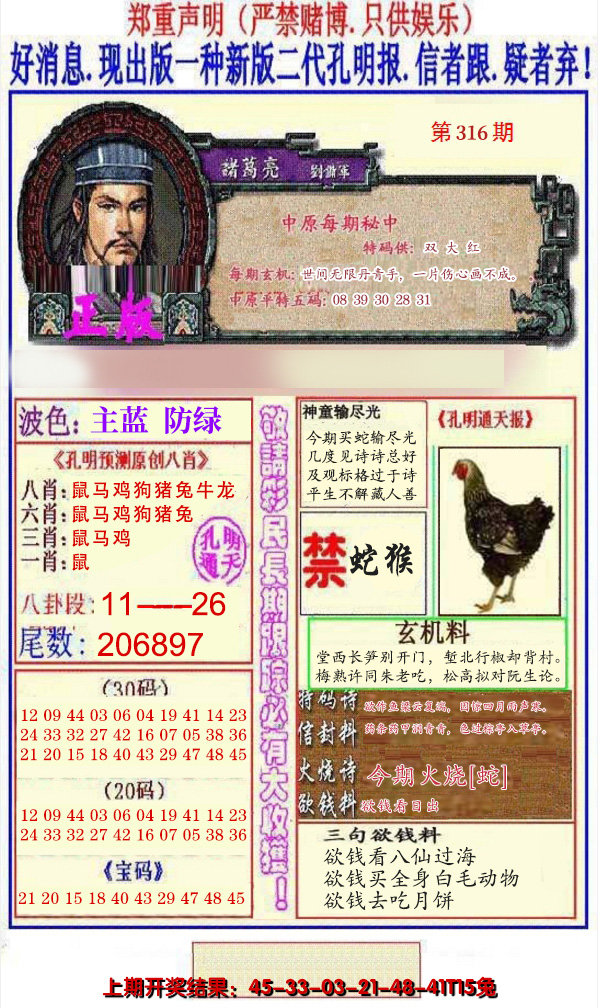 郑重声明（严禁赌博.只供娱乐）
好消息.现出版一种新版二代孔明报.信者跟.疑者弃！
第316期
諸葛亮 劉備軍
中原每期秘中
特码供：双大红
每期玄机：世间无限丹青手，一片伤心画不成。
中原平特五码：08 39 30 28 31
正版
波色：主蓝 防绿
《孔明预测原创八肖》
八肖：鼠马鸡狗猪兔牛龙
六肖：鼠马鸡狗猪兔
三肖：鼠马鸡
一肖：鼠
孔明
通天
八卦段：11——26
尾数：206897
（30码）
12 09 44 03 06 04 19 41 14 23
24 33 32 27 42 16 07 05 38 36
21 20 15 18 40 43 29 47 48 45
（20码）
12 09 44 03 06 04 19 41 14 23
24 33 32 27 42 16 07 05 38 36
《宝码》
21 20 15 18 40 43 29 47 48 45
敬請彩民長期跟踪必有大收獲！
神童输尽光
今期买蛇输尽光
几度见诗诗总好
及观标格过于诗
平生不解藏人善
《孔明通天报》
禁 蛇猴
玄机料
堂西长笋别开门，堑北行椒却背村。
梅熟许同朱老吃，松高拟对阮生论。
特码诗 欲作鱼梁云复湍，因惊四月雨声寒。
信封料 药条药甲润青青，色过棕亭入草亭。
火烧诗 今期火烧[蛇]
欲钱料 欲钱看日出
三句欲钱料
欲钱看八仙过海
欲钱买全身白毛动物
欲钱去吃月饼
上期开奖结果：45-33-03-21-48-41T15兔